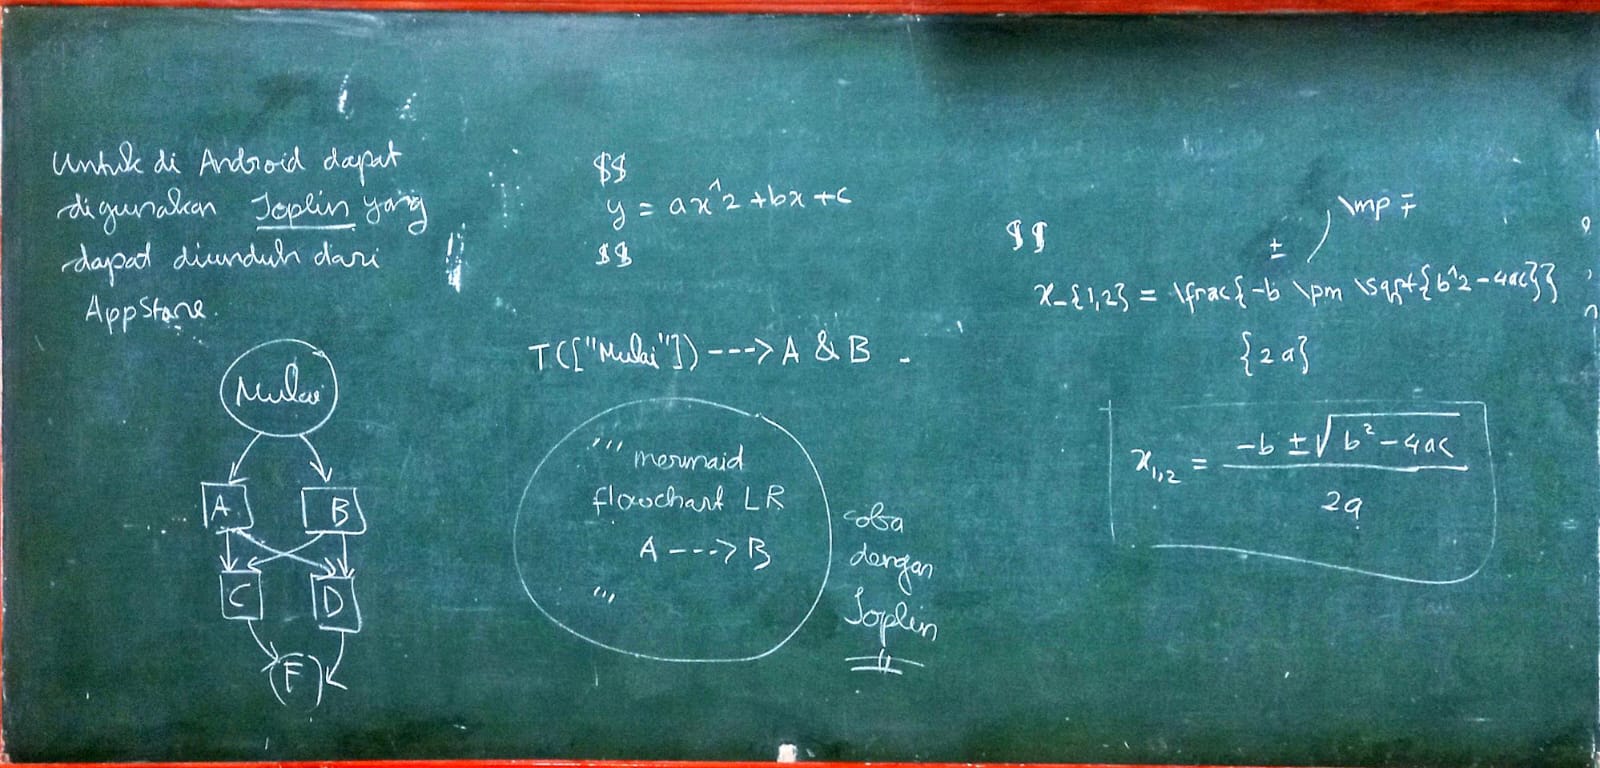 Untuk di Android dapat
digunakan Joplin yang
dapat diunduh dari
AppStore.
Mulai
A B
C D
F
$$
y = ax^2 + bx + c
$$
T(["Mulai"]) ---> A & B
''' mermaid
flowchart LR
A ---> B
'''
coba
dengan
Joplin
\mp ∓
$$
±
x_{1,2} = \frac{-b \pm \sqrt{b^2-4ac}}
{2a}
x₁,₂ = -b ± √b² - 4ac
2a